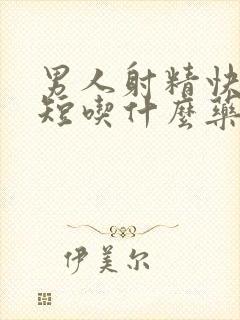 男人射精快
短喫什麼藥
伊美尔